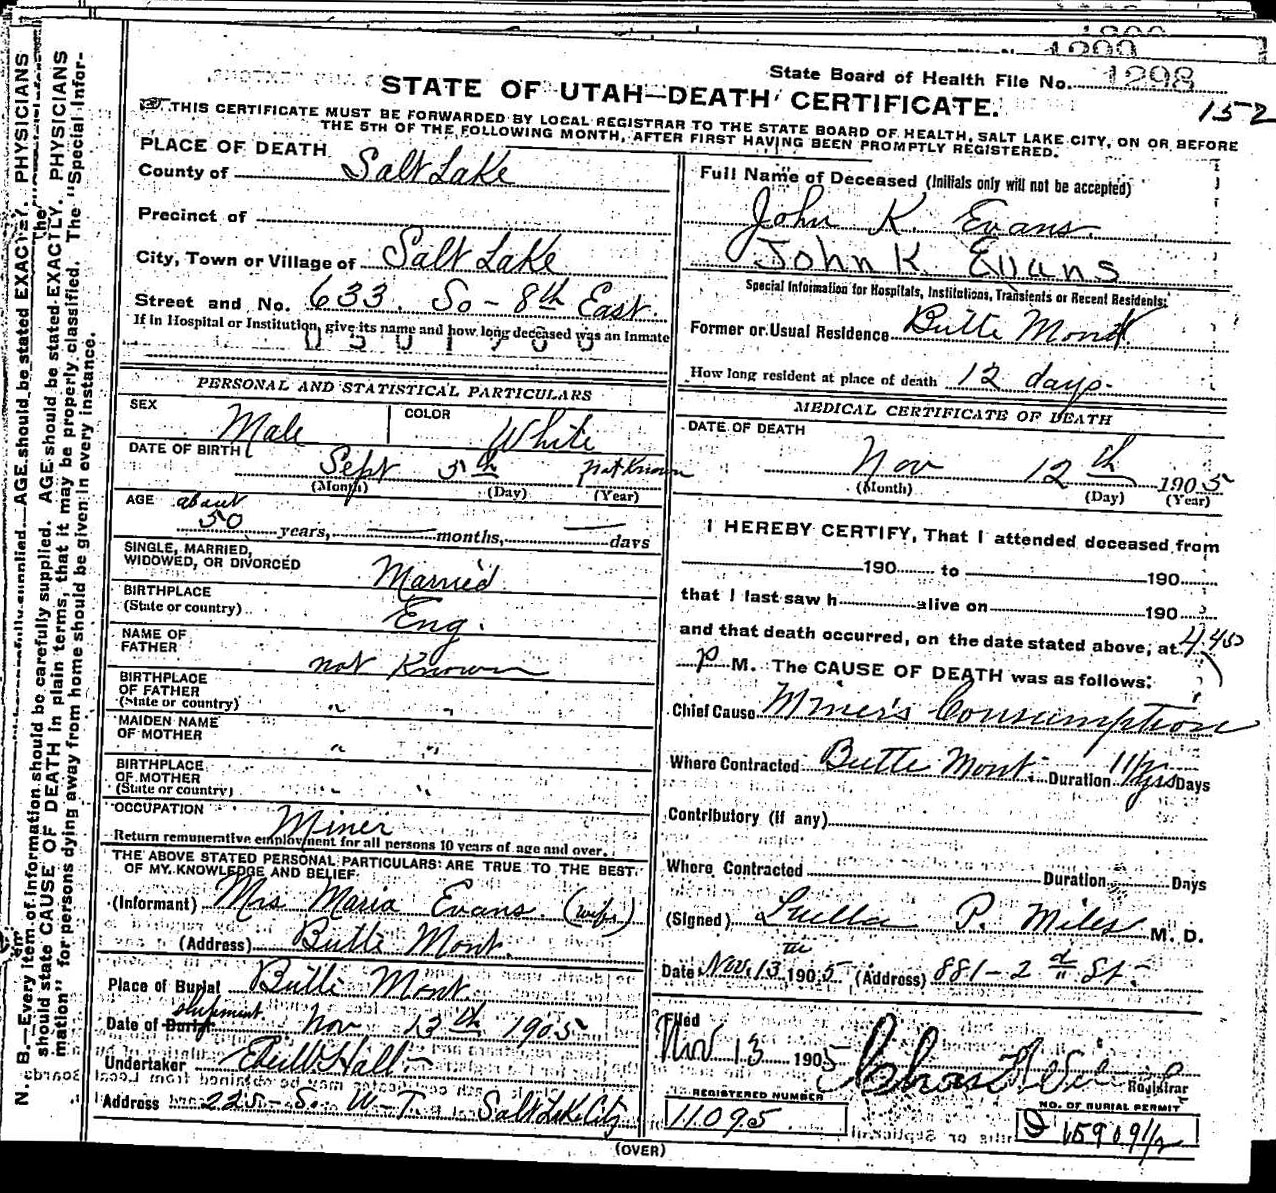 1298
State Board of Health File No. 1298
152
STATE OF UTAH—DEATH CERTIFICATE.
THIS CERTIFICATE MUST BE FORWARDED BY LOCAL REGISTRAR TO THE STATE BOARD OF HEALTH, SALT LAKE CITY, ON OR BEFORE
THE 5TH OF THE FOLLOWING MONTH, AFTER FIRST HAVING BEEN PROMPTLY REGISTERED.
PLACE OF DEATH
County of Salt Lake
Precinct of
City, Town or Village of Salt Lake
Street and No. 633. So - 8th East.
If in Hospital or Institution, give its name and how long deceased was an Inmate
PERSONAL AND STATISTICAL PARTICULARS
SEX Male COLOR White
DATE OF BIRTH Sept 5th not Known
(Month) (Day) (Year)
AGE about
50 years, months, days
SINGLE, MARRIED,
WIDOWED, OR DIVORCED Married
BIRTHPLACE
(State or country) Eng.
NAME OF
FATHER not Known
BIRTHPLACE
OF FATHER
(State or country) " "
MAIDEN NAME
OF MOTHER " "
BIRTHPLACE
OF MOTHER
(State or country) " "
OCCUPATION Miner
Return remunerative employment for all persons 10 years of age and over.
THE ABOVE STATED PERSONAL PARTICULARS ARE TRUE TO THE BEST
OF MY KNOWLEDGE AND BELIEF
(Informant) Mrs Maria Evans. (wife)
(Address) Butte Mont.
Place of Burial Butte Mont.
shipment
Date of Burial Nov 13th 1905
Undertaker Hall
Address 225 - S. W-T. Salt Lake City
Full Name of Deceased (Initials only will not be accepted)
John K. Evans.
John K. Evans
Special Information for Hospitals, Institutions, Transients or Recent Residents:
Former or Usual Residence Butte Mont
How long resident at place of death 12 days.
MEDICAL CERTIFICATE OF DEATH
DATE OF DEATH
Nov 12th 1905
(Month) (Day) (Year)
I HEREBY CERTIFY, That I attended deceased from
190 to 190
that I last saw h alive on 190
and that death occurred, on the date stated above, at 4.45
P M. The CAUSE OF DEATH was as follows:
Chief Cause Miner's Consumption
Where Contracted Butte Mont. Duration 1½ yrs Days
Contributory (if any)
Where Contracted Duration Days
(Signed) Luella P. Miles M. D.
Date Nov. 13th 1905 (Address) 881 - 2nd St.
Filed
Nov 13 1905 Chas Registrar
REGISTERED NUMBER
11095
NO. OF BURIAL PERMIT
D 15909½
(OVER)
N. B.—Every item of information should be carefully supplied. AGE should be stated EXACTLY. PHYSICIANS
should state CAUSE OF DEATH in plain terms, that it may be properly classified. The "Special Infor-
mation" for persons dying away from home should be given in every instance.